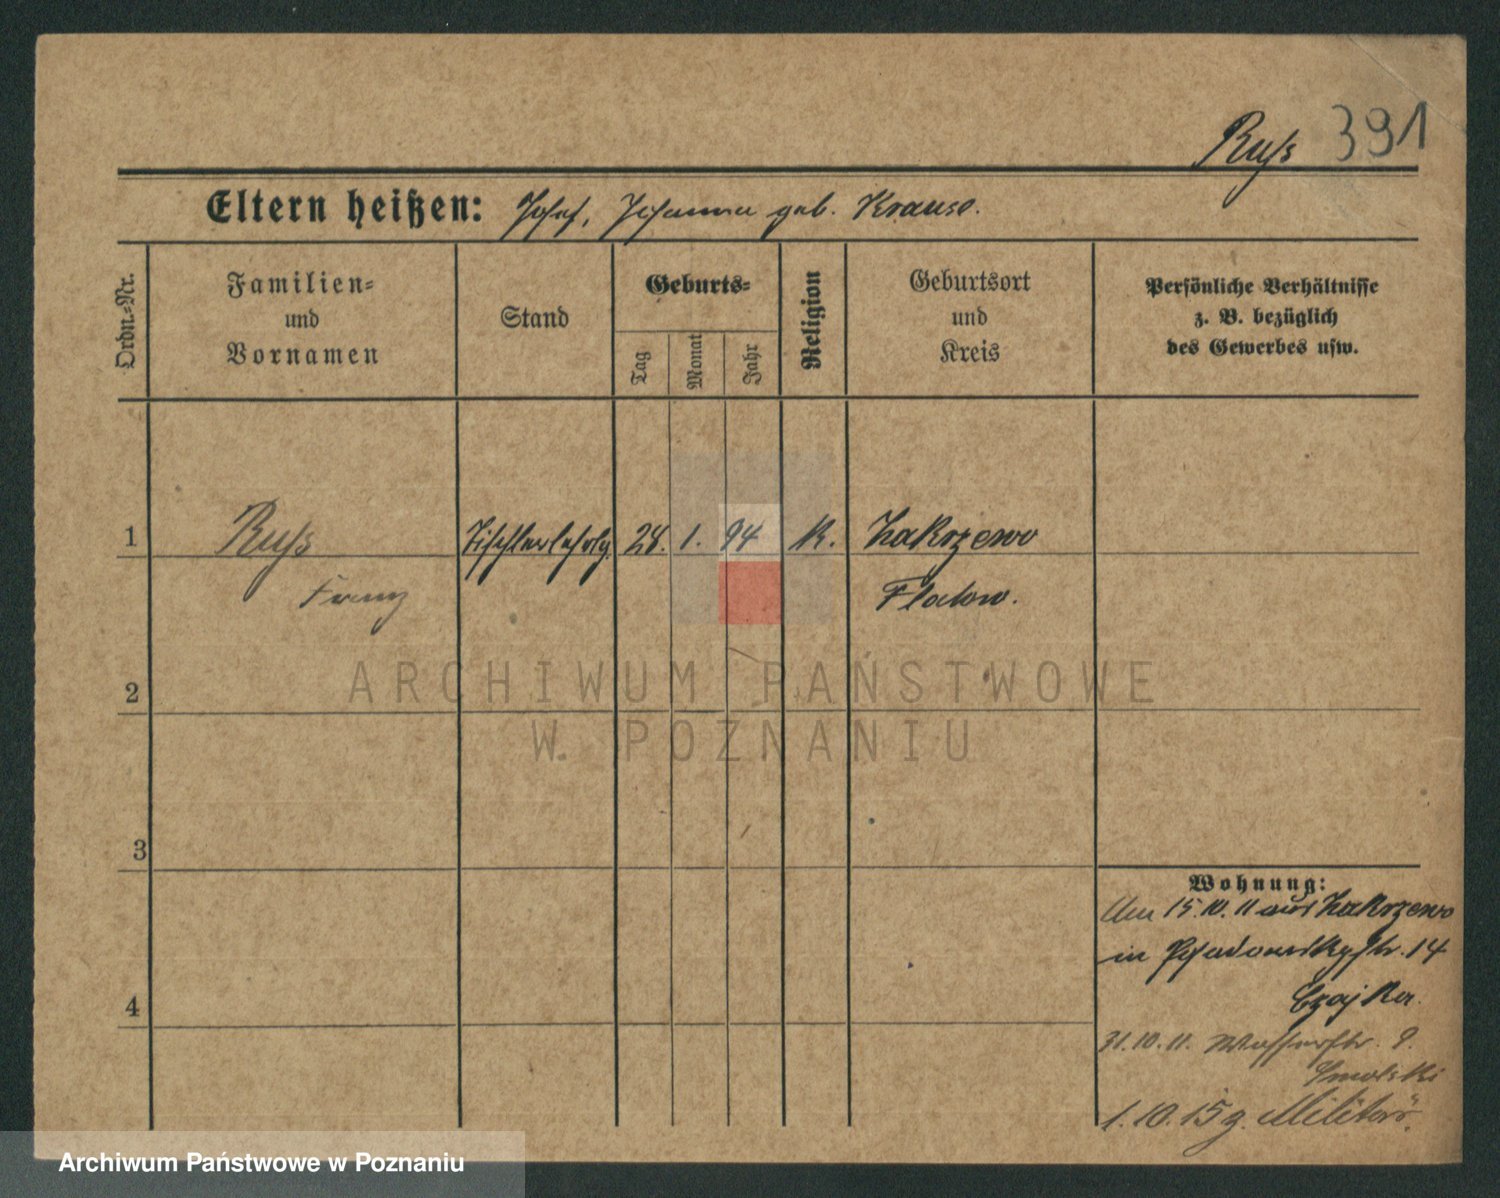 Ruß 391
Eltern heißen: Josef, Johanna geb. Krause.
Ordn.-Nr.
Familien-
und
Vornamen
Stand
Geburts-
Tag
Monat
Jahr
Religion
Geburtsort
und
Kreis
Persönliche Verhältnisse
z. B. bezüglich
des Gewerbes usw.
1 Ruß Tischlerlehrlg. 28. 1. 94 K. Zakrzewo
Franz Flatow.
2
3
4
Wohnung:
Am 15.10.11 aus Zakrzewo
in str. 14
Czajka.
31.10.11. Wasserstr. 9.
Smolski
1.10.15 z. Militär.
ARCHIWUM PAŃSTWOWE
W POZNANIU
Archiwum Państwowe w Poznaniu